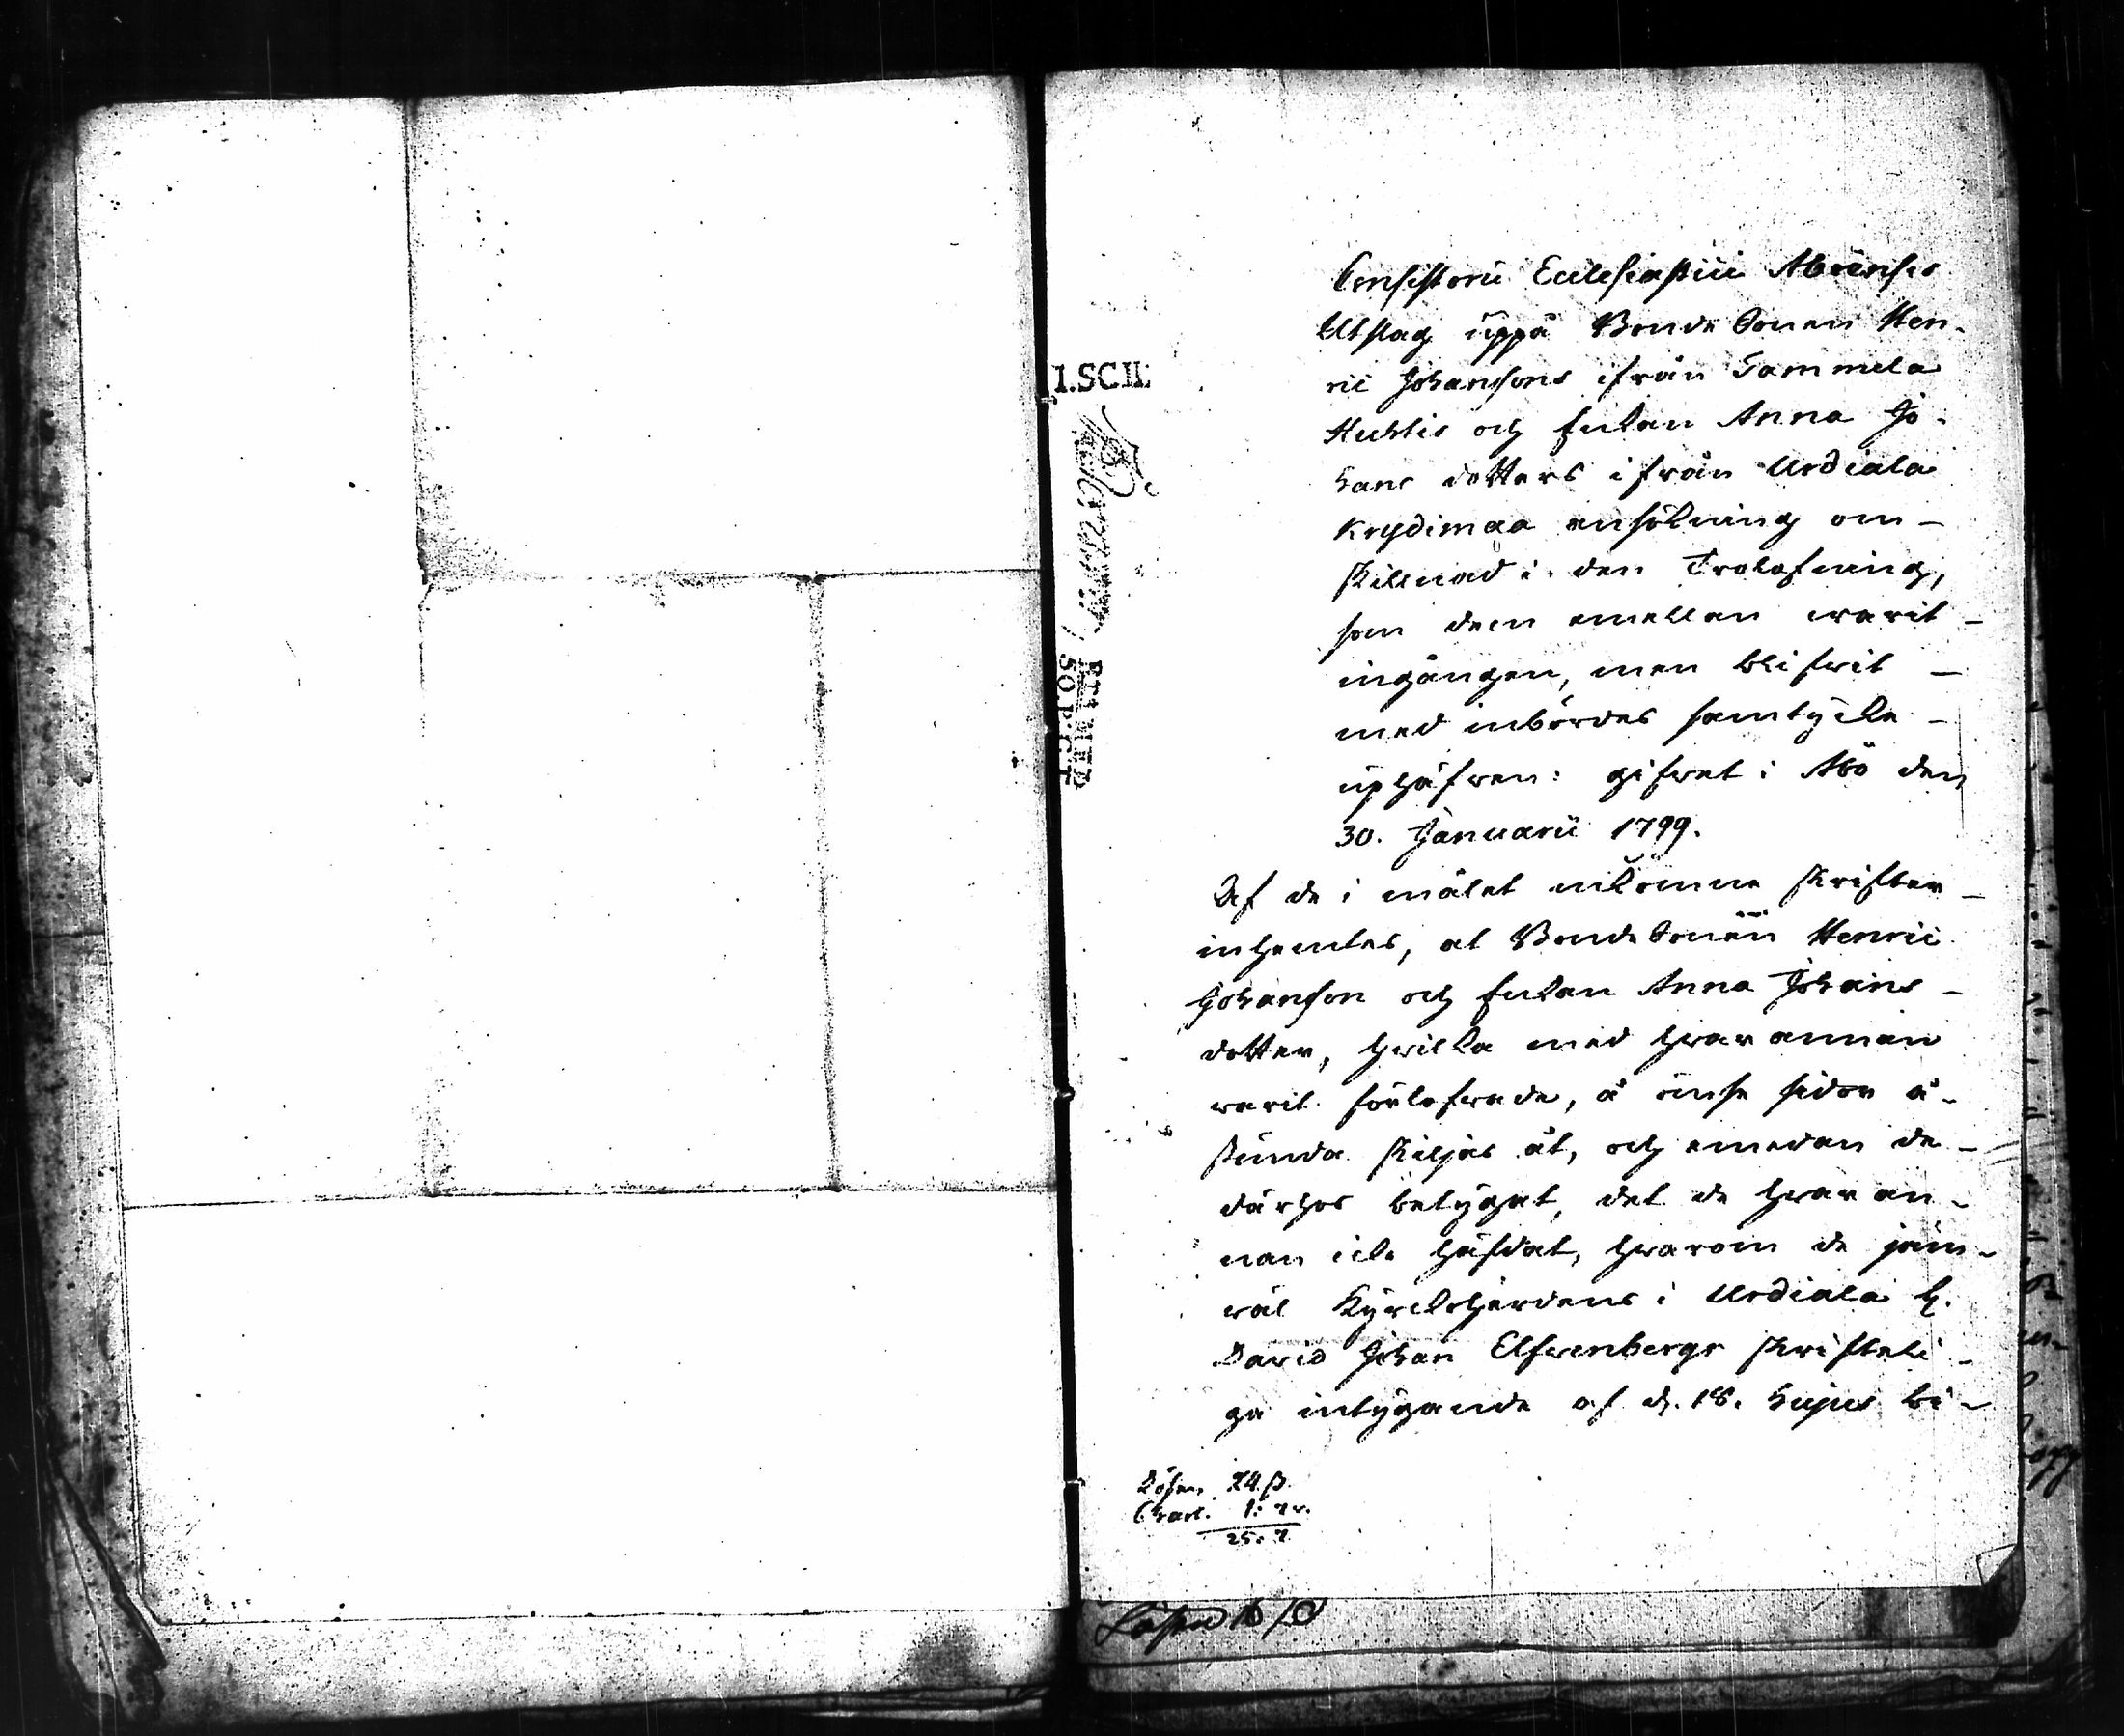 Consistorii Ecclesiastici Aboensis
Utslag uppå Bonde Sonen Hen-
ric Johansons ifrån Tammela
Huhtis och Enkan Anna Jo-
hans dotters ifrån Urdiala
Krydimaa ansökning om-
skillnad i den Trolofning,
som dem emellan warit -
ingången, men blifwit -
med inbördes samtycke -
uphäfwen: gifwet i Åbo den
30. Januarii 1799.
Af de i målet inkomne skrifter -
inhemtes, at Bonde Sonen Henric
Johanson och Enkan Anna Johans -
dotter, hwilka med hwarannan
warit förlofwade, å ömse sidor å-
stunda skiljas åt, och emedan de -
därhos betygat, det de hwaran-
nan icke häfdat, hwarom de jäm-
wäl Kyrckoherdens i Urdiala H.
David Johan Elfwenbergs skrifteli -
ga intygande af d. 18. hujus bi-
Lösen, 24 ß.
Chart. 1: 7 r.
25: 7
1.SC.II.
50.P:C:T
Lösen 16 ß